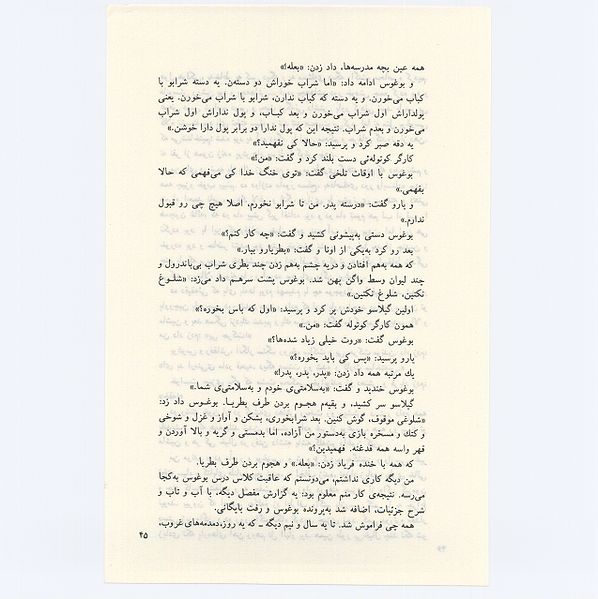 همه عین بچه مدرسه‌ها، داد زدن: «بعله!»
و بوغوس ادامه داد: «اما شراب خوراش دو دسته‌ن. یه دسته شرابو با
کباب می‌خورن. و یه دسته که کباب ندارن، شرابو با شراب می‌خورن. یعنی
پولداراش اول شراب می‌خورن و بعد کباب، و پول نداراش اول شراب
می‌خورن و بعدم شراب. نتیجه این که پول ندارا دو برابر پول دارا خوشن.»
یه دفه صبر کرد و پرسید: «حالا کی نفهمید؟»
کارگر کوتوله‌ئی دست بلند کرد و گفت: «من!»
بوغوس با اوقات تلخی گفت: «توی خنگ خدا کی می‌فهمی که حالا
بفهمی.»
و یارو گفت: «درسته پدر. من تا شرابو نخورم، اصلا هیچ چی رو قبول
ندارم.»
بوغوس دستی به‌پیشونی کشید و گفت: «چه کار کنم؟»
بعد رو کرد به‌یکی از اونا و گفت: «بطریارو بیار.»
که همه به‌هم افتادن و دریه چشم به‌هم زدن چند بطری شراب بی‌باندرول و
چند لیوان وسط واگن پهن شد. بوغوس پشت سرهم داد می‌زد: «شلوغ
نکنین، شلوغ نکنین.»
اولین گیلاسو خودش پر کرد و پرسید: «اول که باس بخوره؟»
همون کارگر کوتوله گفت: «من.»
بوغوس گفت: «روت خیلی زیاد شده‌ها؟»
یارو پرسید: «پس کی باید بخوره؟»
یك مرتبه همه داد زدن: «پدر، پدر، پدر!»
بوغوس خندید و گفت: «به‌سلامتی‌ی خودم و به‌سلامتی‌ی شما.»
گیلاسو سر کشید، و بقیه‌م هجوم بردن طرف بطریا. بوغوس داد زد:
«شلوغی موقوف، گوش کنین. بعد شرابخوری، بشکن و آواز و غزل و شوخی
و کتك و مسخره بازی به‌دستور من آزاده، اما بدمستی و گریه و بالا آوردن و
قهر واسه همه قدغنه. فهمیدین؟»
که همه با خنده فریاد زدن: «بعله.» و هجوم بردن طرف بطریا.
من دیگه کاری نداشتم، می‌دونستم که عاقبت کلاس درس بوغوس به‌کجا
می‌رسه. نتیجه‌ی کار منم معلوم بود: یه گزارش مفصل دیگه، با آب و تاب و
شرح جزئیات، اضافه شد به‌پرونده بوغوس و رفت بایگانی.
همه چی فراموش شد. تا یه سال و نیم دیگه ـ که یه روز، دمدمه‌های غروب،
۴۵